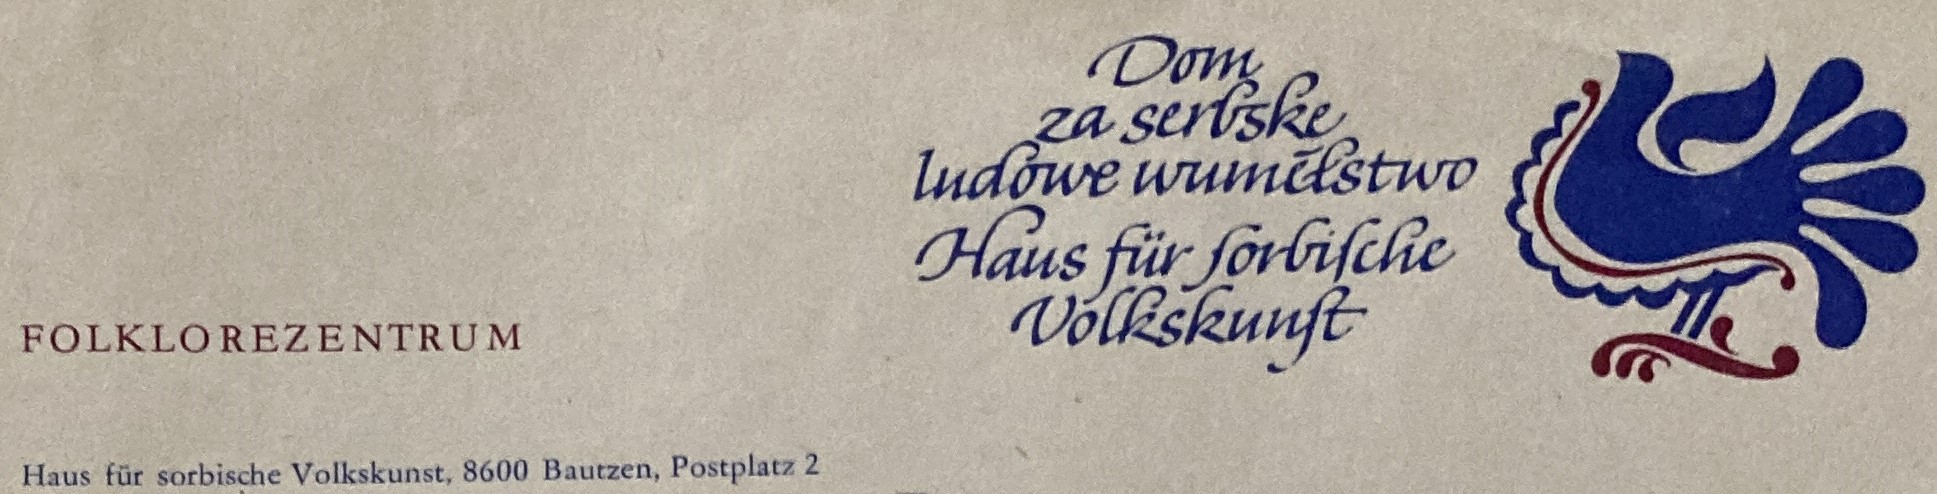 Dom
za serbske
ludowe wuměłstwo
Haus für ſorbiſche
Volkskunſt
FOLKLOREZENTRUM
Haus für sorbische Volkskunst, 8600 Bautzen, Postplatz 2